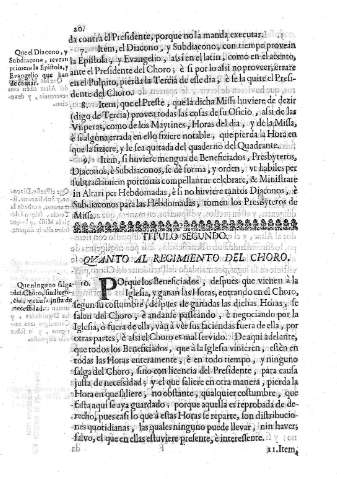 20.
da contra el Presidente, porque no la manda executar.
Que el Diacono, y
Subdiacono, vean
primero la Epistola, y
Evangelio que han
de cantar.
7. Item, el Diacono, y Subdiacono, con tiempo provean
la Epistola, y Evangelio, assi en el latin, como en el accento,
ante el Presidente del Choro; è si por lo assi no proveer, errare
en el Pulpito, pierda la Tercia de esse dia, è se la quite el Presi-
dente del Choro.
Item, que el Preste, que la dicha Missa huviere de dezir
(digo de Tercia) provea todas las cosas de su Oficio, assi de las
Visperas, como de los Maytines, Horas del dia, y de la Missa,
è si algo errada en ello fiziere notable, que pierda la Hora en
que la fiziere, y le sea quitada del quaderno del Quadrante.
Item, si huviere mengua de Beneficiados, Presbyteros,
Diaconos, è Subdiaconos, se de forma, y orden, ut habiles per
substractionem portionis compellantur celebrare, & Ministrare
in Altari per Hebdomadas, è si no huviere tantos Diaconos, è
Subdiaconos para las Hebdomadas, tomen los Presbyteros de
Missa.
TITULO SEGUNDO.
QUANTO AL REGIMIENTO DEL CHORO.
Que ninguno salga
del Choro, sin licen-
cia, y causa justa de
necesidad.
10. POrque los Beneficiados, despues que vienen à la
Iglesia, y ganan las Horas, entrando en el Choro,
segun su costumbre, despues de ganadas las dichas Horas, se
salen del Choro, è andanse passeando, è negociando por la
Iglesia, è fuera de ella, van à vèr sus faciendas fuera de ella, por
otras partes, è assi el Choro es mal servido. De aqui adelante,
que todos los Beneficiados, que à la Iglesia vinieren, estèn en
todas las Horas enteramente, è en todo tiempo, y ninguno
salga del Choro, sino con licencia del Presidente, para causa
justa de necesidad; y el que saliere en otra manera, pierda la
Hora en que saliere, no obstante, qualquier costumbre, que
hasta aqui se aya guardado, porque aquella es reprobada de de-
recho, pues casi lo que à estas Horas se reparte, son distribucio-
nes quotidianas, las quales ninguno puede llevar, nin haver;
salvo, el que en ellas estuviere presente, è interessente.
11. Item,